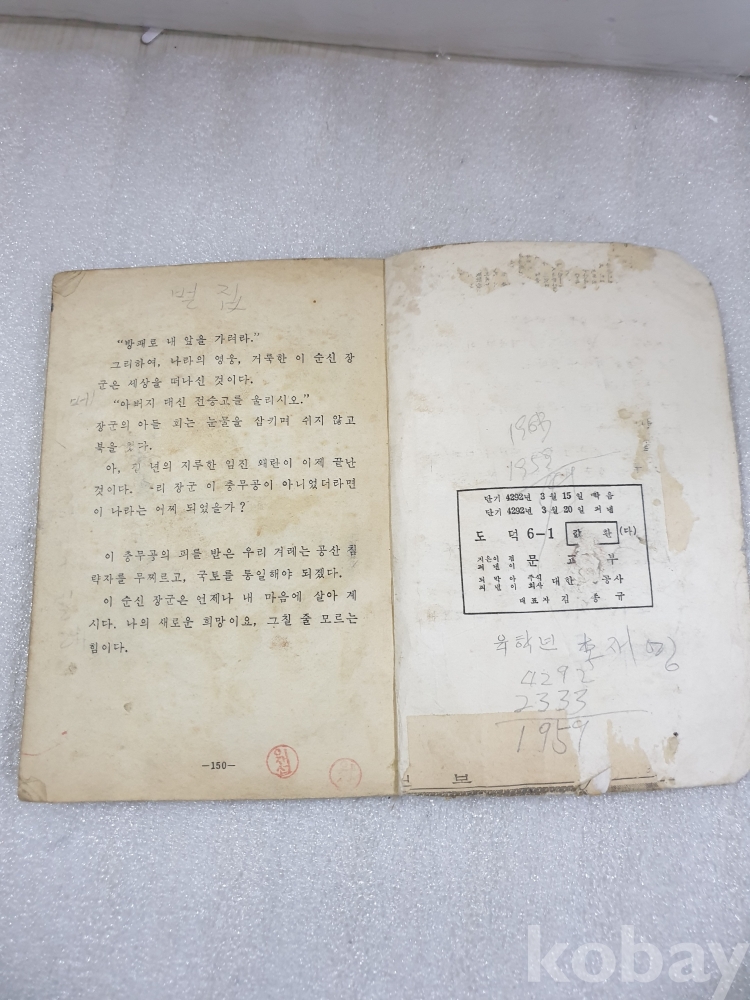 벌집
“방패로 내 앞을 가려라.”
그리하여, 나라의 영웅, 거룩한 이 순신 장
군은 세상을 떠나신 것이다.
“아버지 대신 전승고를 울리시오.”
장군의 아들 회는 눈물을 삼키며 쉬지 않고
북을
아, 년의 지루한 임진 왜란이 이제 끝난
것이다. 리 장군 이 충무공이 아니었더라면
이 나라는 어찌 되었을가?
이 충무공의 피를 받은 우리 겨레는 공산 침
략자를 무찌르고, 국토를 통일해야 되겠다.
이 순신 장군은 언제나 내 마음에 살아 계
시다. 나의 새로운 희망이요, 그칠 줄 모르는
힘이다.
—150—
1959
단기 4292년 3월 15일 박음
단기 4292년 3월 20일 펴냄
도 덕 6-1 값 환 (다)
지은이 겸
펴낸이 문 교 부
주식
회사 대한 공사
대표자 김 종 규
육학년
4292
2333
1959
kobay